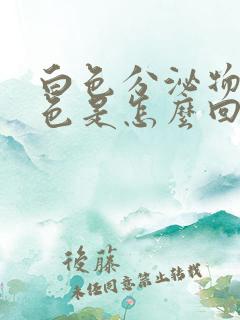 白色分泌物
色是怎麼回
後藤
未经同意禁止转载